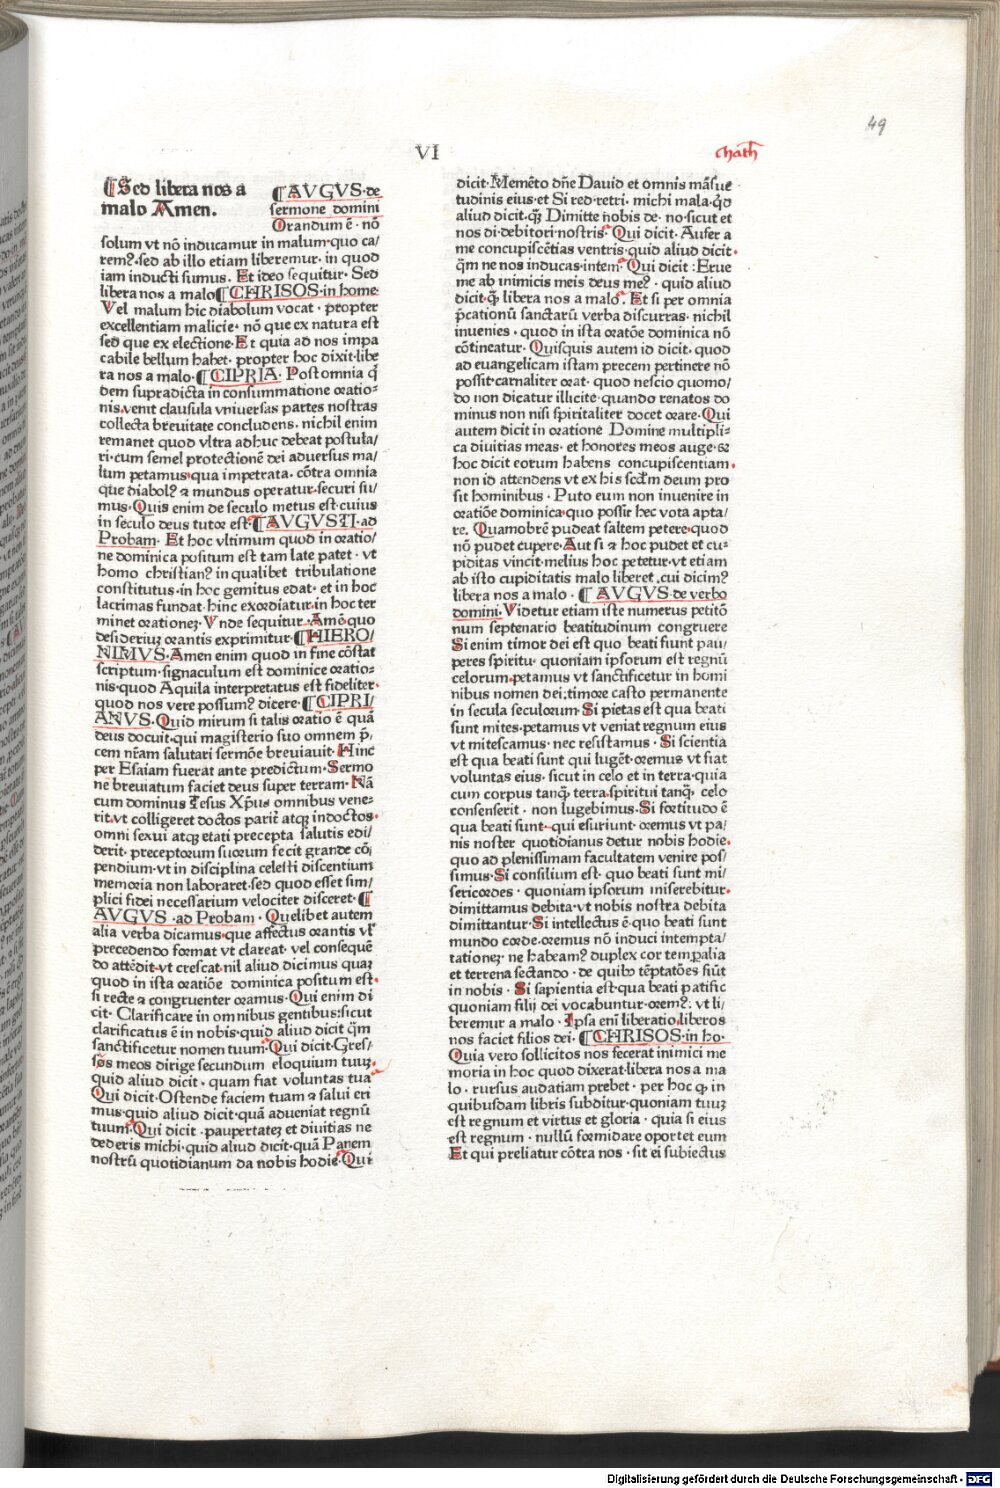 49
VI
Math
¶Sed libera nos a
malo Amen.
¶AVGVS·de
sermone domini
Orandum ē· nō
solum vt nō inducamur in malum·quo ca/
rem?·sed ab illo etiam liberemur· in quod
iam inducti sumus. Et ideo sequitur· Sed
libera nos a malo¶CHRISOS·in home·
Vel malum hic diabolum vocat · propter
excellentiam malicie· nō que ex natura est
sed que ex electione·Et quia ad nos impa
cabile bellum habet· propter hoc dixit·libe
ra nos a malo·¶CIPRIA· Post omnia q̄
dem supradicta in consummatione oratio=
nis·venit clausula vniuersas partes nostras
collecta breuitate concludens. nichil enim
remanet quod vltra adhuc debeat postula/
ri·cum semel protectionē dei aduersus ma/
lum petamus·qua impetrata· cōtra omnia
que diabol? ⁊ mundus operatur·securi su/
mus·Quis enim de seculo metus est·cuius
in seculo deus tutor est·¶AVGVSTI·ad
Probam· Et hoc vltimum quod in oratio/
ne dominica positum est tam late patet · vt
homo christian? in qualibet tribulatione
constitutus·in hoc gemitus edat· et in hoc
lacrimas fundat·hinc exordiatur·in hoc ter
minet orationeꝫ· Vnde sequitur·Amē·quo
desiderium orantis exprimitur·¶HIERO/
NIMVS·Amen enim quod in fine cōstat
scriptum·signaculum est dominice oratio=
nis·quod Aquila interpretatus est fideliter·
quod nos vere possum? dicere·¶CIPRI/
ANVS·Quid mirum si talis oratio ē quā
deus docuit·qui magisterio suo omnem p̄,
cem nr̄am salutari sermōe breuiauit·Hinc
per Esaiam fuerat ante predictum·Sermo
nē breuiatum faciet deus super terram· Nā
cum dominus Iesus Xp̄us omnibus vene=
rit·vt colligeret doctos parit̄ atqꝫ indoctos·
omni sexui atqꝫ etati precepta salutis edi/
derit· preceptorum suorum fecit grande cō,
pendium·vt in disciplina celesti discentium
memoria non laboraret·sed quod esset sim/
plici fidei necessarium velociter disceret·¶
AVGVS·ad Probam · Quelibet autem
alia verba dicamus·que affectus orantis vl̄
precedendo format vt clareat· vel consequē
do attēdit·vt crescat·nil aliud dicimus quaꝫ
quod in ista oratiōe dominica positum est·
si recte ⁊ congruenter oramus·Qui enim di
cit· Clarificare in omnibus gentibus:sicut
clarificatus ē in nobis·quid aliud dicit q̄m
sanctificetur nomen tuum·Qui dicit·Gres/
sos meos dirige secundum eloquium tuuꝫ·
quid aliud dicit · quam fiat voluntas tua
Qui dicit·Ostende faciem tuam ⁊ salui eri
mus·quid aliud dicit·quā adueniat regnū
tuum·Qui dicit ·paupertateꝫ et diuitias ne
dederis michi·quid aliud dicit·quā Panem
nostrū quotidianum da nobis hodie·Qui
dicit·Memēto dn̄e Dauid et omnis māsue
tudinis eius·et Si red·retri· michi mala·q̇d
aliud dicit·q̄ꝫ Dimitte nobis de· no·sicut et
nos di·debitori·nostris·Qui dicit· Aufer a
me concupiscētias ventris·quid aliud dicit·
q̄m ne nos inducas·intem·Qui dicit:Erue
me ab inimicis meis deus me? · quid aliud
dicit·q̄ꝫ libera nos a malo·. Et si per omnia
p̄cationū sanctarū verba discurras· nichil
inuenies · quod in ista oratōe dominica nō
cōtineatur· Quisquis autem id dicit· quod
ad euangelicam istam precem pertinere nō
possit·carnaliter orat· quod nescio quomo/
do non dicatur illicite·quando renatos do
minus non nisi spiritaliter docet orare·Qui
autem dicit in oratione Domine multipli=
ca diuitias meas· et honores meos auge·⁊
hoc dicit eorum habens concupiscentiam·
non id attendens vt ex his scd̄m deum pro
sit hominibus · Puto eum non inuenire in
oratiōe dominica·quo possit hec vota apta/
re. Quamobrē pudeat saltem petere·quod
nō pudet cupere·Aut si ⁊ hoc pudet et cu=
piditas vincit·melius hoc petetur·vt etiam
ab isto cupiditatis malo liberet·cui dicim?
libera nos a malo · ¶AVGVS·de verbo
domini·Videtur etiam iste numerus petitō
num septenario beatitudinum congruere
Si enim timor dei est quo beati fiunt pau/
peres spiritu· quoniam ipsorum est regnū
celorum·petamus vt sanctificetur in homi
nibus nomen dei;timore casto permanente
in secula seculorum· Si pietas est qua beati
sunt mites·petamus vt veniat regnum eius
vt mitescamus · nec resistamus · Si scientia
est qua beati sunt qui lugēt·oremus vt fiat
voluntas eius· sicut in celo et in terra·quia
cum corpus tanq̄ꝫ terra·spiritui tanq̄ꝫ celo
consenserit · non lugebimus·Si fortitudo ē
qua beati sunt·qui esuriunt· oremus vt pa/
nis noster quotidianus detur nobis hodie·
quo ad plenissimam facultatem venire pos/
simus·Si consilium est· quo beati sunt mi/
sericordes · quoniam ipsorum miserebitur·
dimittamus debita·vt nobis nostra debita
dimittantur·Si intellectus ē·quo beati sunt
mundo corde·oremus nō induci intempta/
tationeꝫ· ne habeam? duplex cor temp̄alia
et terrena sectando · de quibo tēptatōes fiūt
in nobis · Si sapientia est·qua beati patific
quoniam filij dei vocabuntur·orem?· vt li/
beremur a malo · Ipsa eni liberatio·liberos
nos faciet filios dei· ¶CHRISOS·in ho·
Quia vero sollicitos nos fecerat inimici me
moria in hoc quod dixerat·libera nos a ma
lo · rursus audatiam prebet · per hoc q̄ in
quibusdam libris subditur·quoniam tuuꝫ
est regnum et virtus et gloria · quia si eius
est regnum · nullū formidare oportet eum
Et qui preliatur cōtra nos · sit ei subiectus
Digitalisierung gefördert durch die Deutsche Forschungsgemeinschaft - DFG